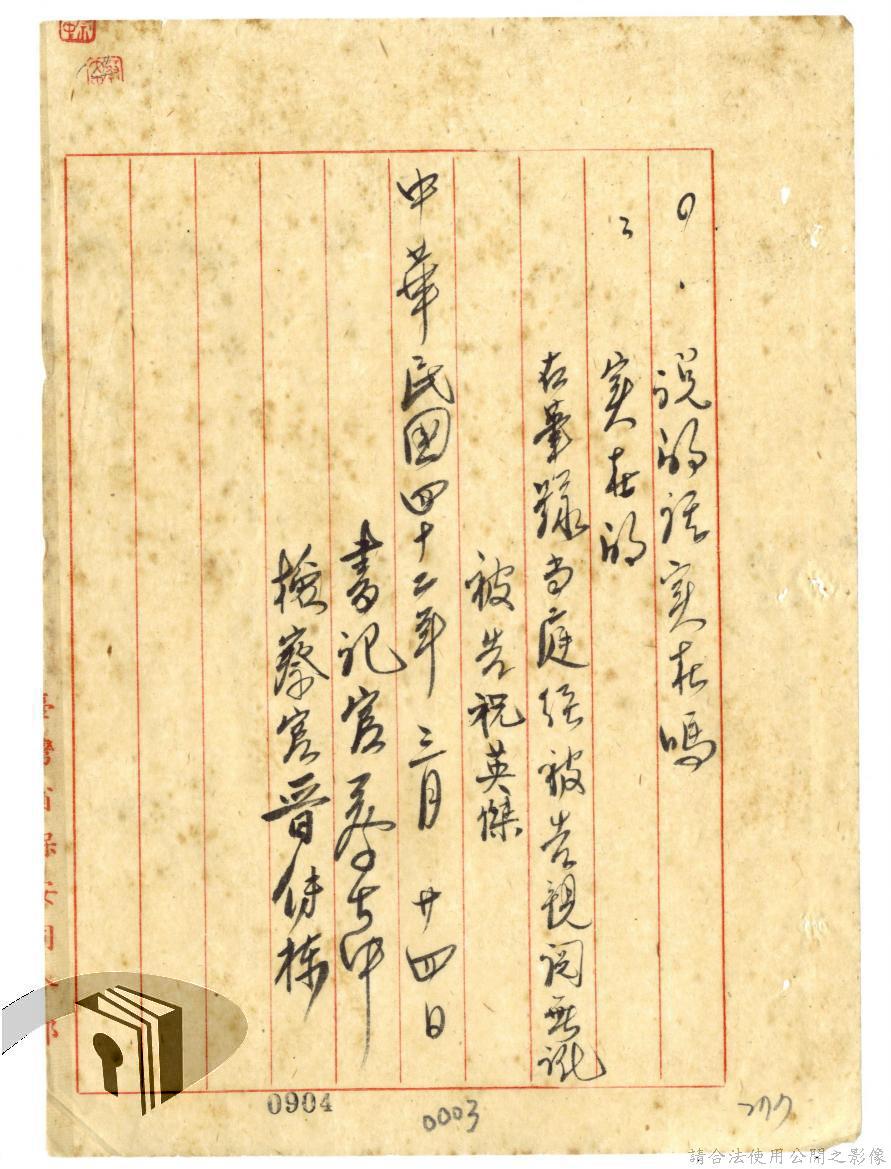 說的話实在嗎
实在的
右筆錄当庭經被告親閱無訛
被告祝英傑
中華民國四十二年三月廿四日
書記官
檢察官晉傳棟
臺灣省保安司令部
0904
0003
請合法使用公開之影像